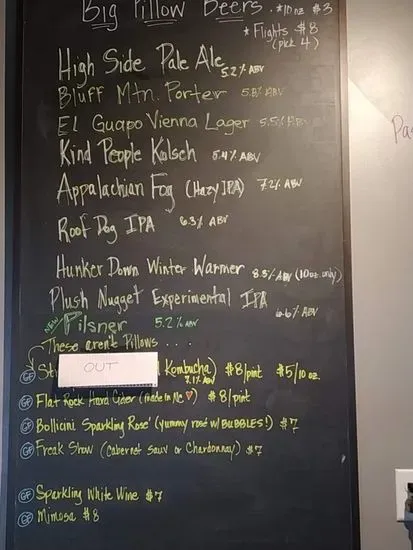 Big Pillow Beers . *10oz $3
* Flights $8
(pick 4)
High Side Pale Ale 5.2% ABV
Bluff Mtn. Porter 5.8% ABV
El Guapo Vienna Lager 5.5% ABV
Kind People Kolsch 5.4% ABV
Appalachian Fog (Hazy IPA) 7.2% ABV
Roof Dog IPA 6.3% ABV
Hunker Down Winter Warmer 8.5% ABV (10oz. only)
Plush Nugget Experimental IPA 6.6% ABV
NEW Pilsner 5.2% ABV
These aren't Pillows . . . .
GF OUT Kombucha) $8/pint $5/10 oz.
7.1% ABV
GF Flat Rock Hard Cider (made in NC ♥) $8/pint
GF Bollicini Sparkling Rose' (yummy rosé w/ BUBBLES!) $7
GF Freak Show (Cabernet Sauv or Chardonnay) $7
GF Sparkling White Wine $7
GF Mimosa $8